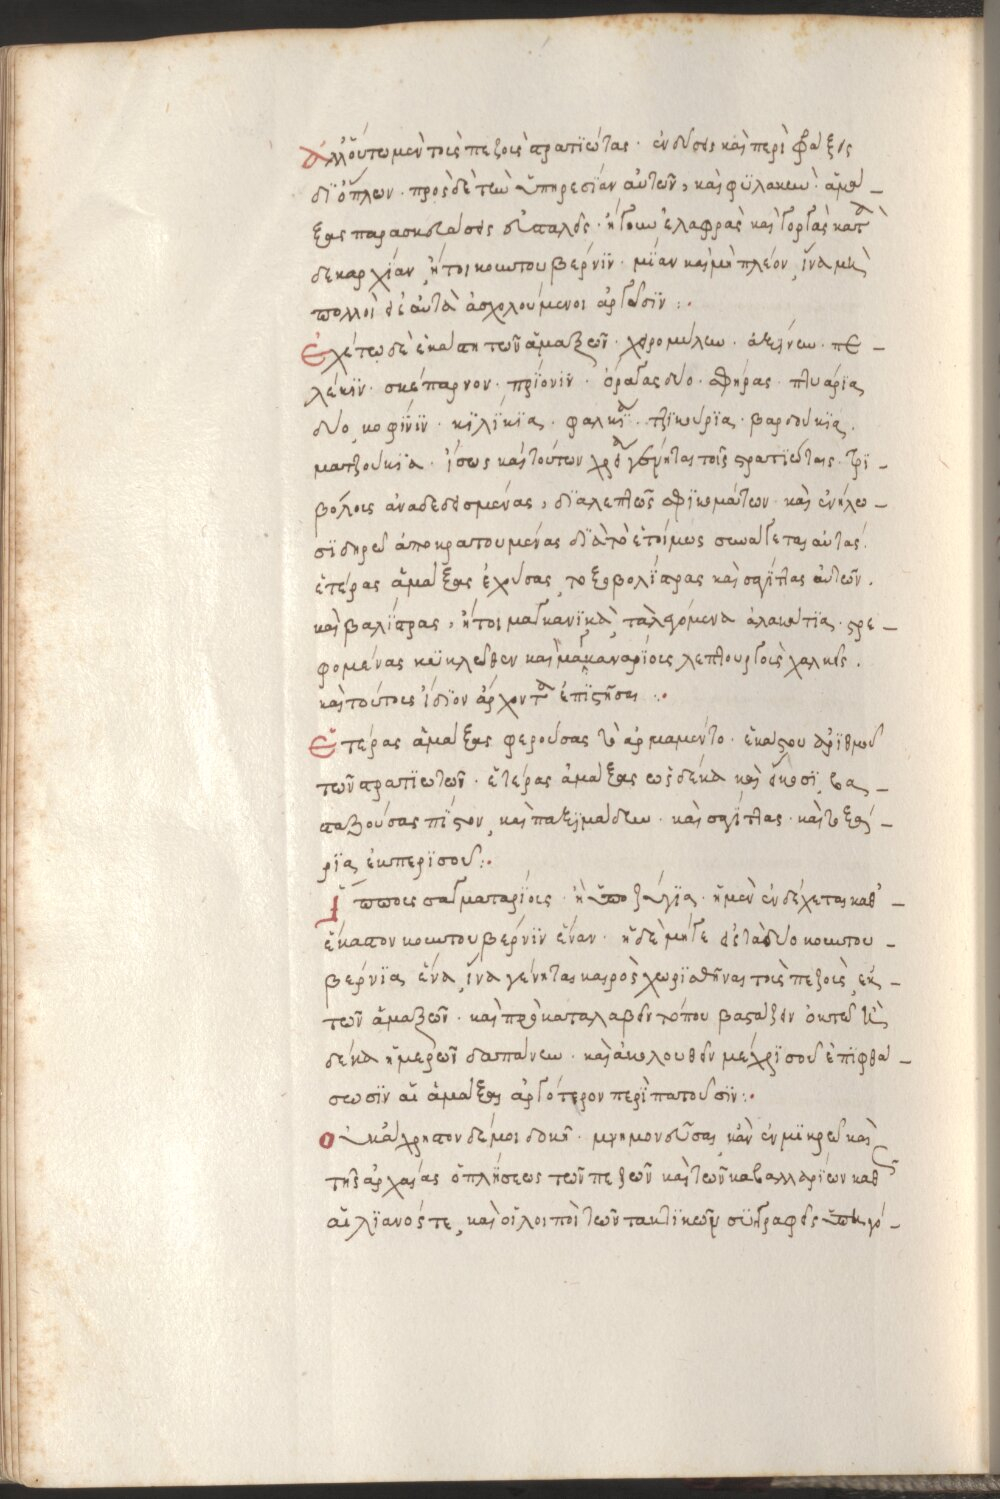 Ἀλλ' οὕτω μὲν τοῖς πεζοῖς στρατιώτας · ἐνδύσεις καὶ περιφράξεις
δι' ὅπλων · πρὸς δὲ τὴν ὑπηρεσίαν αὐτῶν, καὶ φυλακὴν · ἁμά–
ξας παρασκευάσεις εὐσταλεῖς · ἤγουν ἐλαφρὰς καὶ γοργὰς κατὰ
δεκαρχίαν ἤτοι κοντουβέρνιν · μίαν καὶ μὴ πλέον, ἵνα μὴ
πολλοὶ εἰς αὐτὰ ἀσχολούμενοι ἀργῶσιν :·
Ἐχέτω δὲ ἑκάστη τῶν ἁμαξῶν · χειρομύλιν · ἀξίνην · πε–
λέκιν · σκέπαρνον · πριόνιν · ὀρύγας δύο · σφύρας · πτυάρια
δύο, κοφίνιν · κιλίκια · φαλκία · τζικούρια · βαρδούκια,
ματζούκια · ἴσως καὶ τούτων χρεία γένηται τοῖς στρατιώταις · τρι–
βόλοις ἀναδεδεσμένας, διὰ λεπτῶν σφικωμάτων · καὶ ἐν ἥλῳ–
σιδηρῷ ἀποκρατουμένας διὰ τὸ ἑτοίμως συνάγεται αὐτὰς·
ἑτέρας ἁμάξας ἐχούσας τοξοβολίστρας καὶ σαγίττας αὐτῶν ·
καὶ βαλίστρας, ἤτοι μαγκανικὰ, τὰ λεγόμενα ἀλακάτια · στρε–
φομένας κύκλωθεν καὶ μαγκαναρίοις λεπτουργοῖς χαλκεῖς ·
καὶ τούτοις ἴδιον ἄρχοντα ἐπιστῆσαι :·
Ἑτέρας ἁμάξας φερούσας τὸ ἀρμαμέντο · ἑκάστου ἀριθμοῦ
τῶν στρατιωτῶν · ἑτέρας ἁμάξας ὡς δέκα καὶ εἴκοσι, βα–
σταζούσας πίστον καὶ παξιμάδιν · καὶ σαγίττας · καὶ τοξά–
ρια ἐκ περισσοῦ :·
Ἵπποις σαγματαρίοις · ἢ ὑποζύγια · ἢ μὲν ἐνδέχεται καθ'–
ἕκαστον κοντουβέρνιν ἕναν · ἢ δὲ μήγε εἰς τὰ δύο κοντου–
βέρνια ἕνα, ἵνα γένηται καιρὸς χωρισθῆναι τοῖς πεζοῖς, ἐκ–
τῶν ἁμαξῶν · καὶ προκαταλαβεῖν τόπου βαστάζειν ὀκτὼ ἢ
δέκα ἡμερῶν δαπάνην · καὶ ἀκολουθεῖν μέχρις οὗ ἐπιφθά–
σωσιν αἱ ἅμαξαι ἀργότερον περιπατοῦσιν :·
Οὐκ ἄχρηστον δέ μοι δοκῆ · μνημονεῦσαι, κἂν ἐν μικρῷ καὶ
τῆς ἀρχαίας ὁπλήσεως τῶν πεζῶν καὶ τῶν καβαλλαρίων καθὼς
αἰλιανός τε, καὶ οἱ λοιποὶ τῶν τακτικῶν συγγραφεῖς